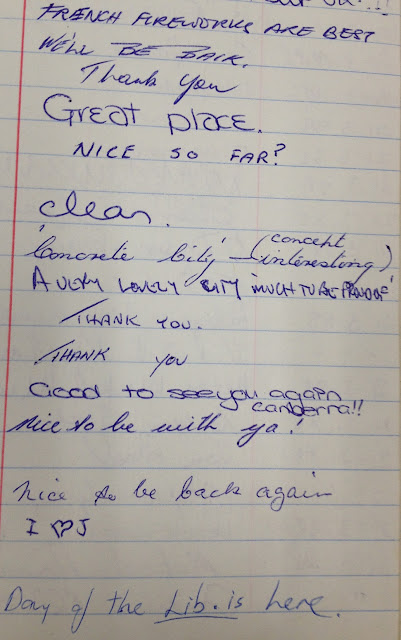 FRENCH FIREWORKS ARE BEST
WE'LL BE BACK.
Thank you
Great place.
NICE SO FAR?
clean.
'Concrete City' (concept interesting)
A VERY LOVELY CITY MUCH TO BE PROUD OF
THANK YOU.
THANK YOU
Good to see you again
canberra!!
Nice to be with ya!
Nice to be back again
I ♡ J
Day of the Lib. is here.